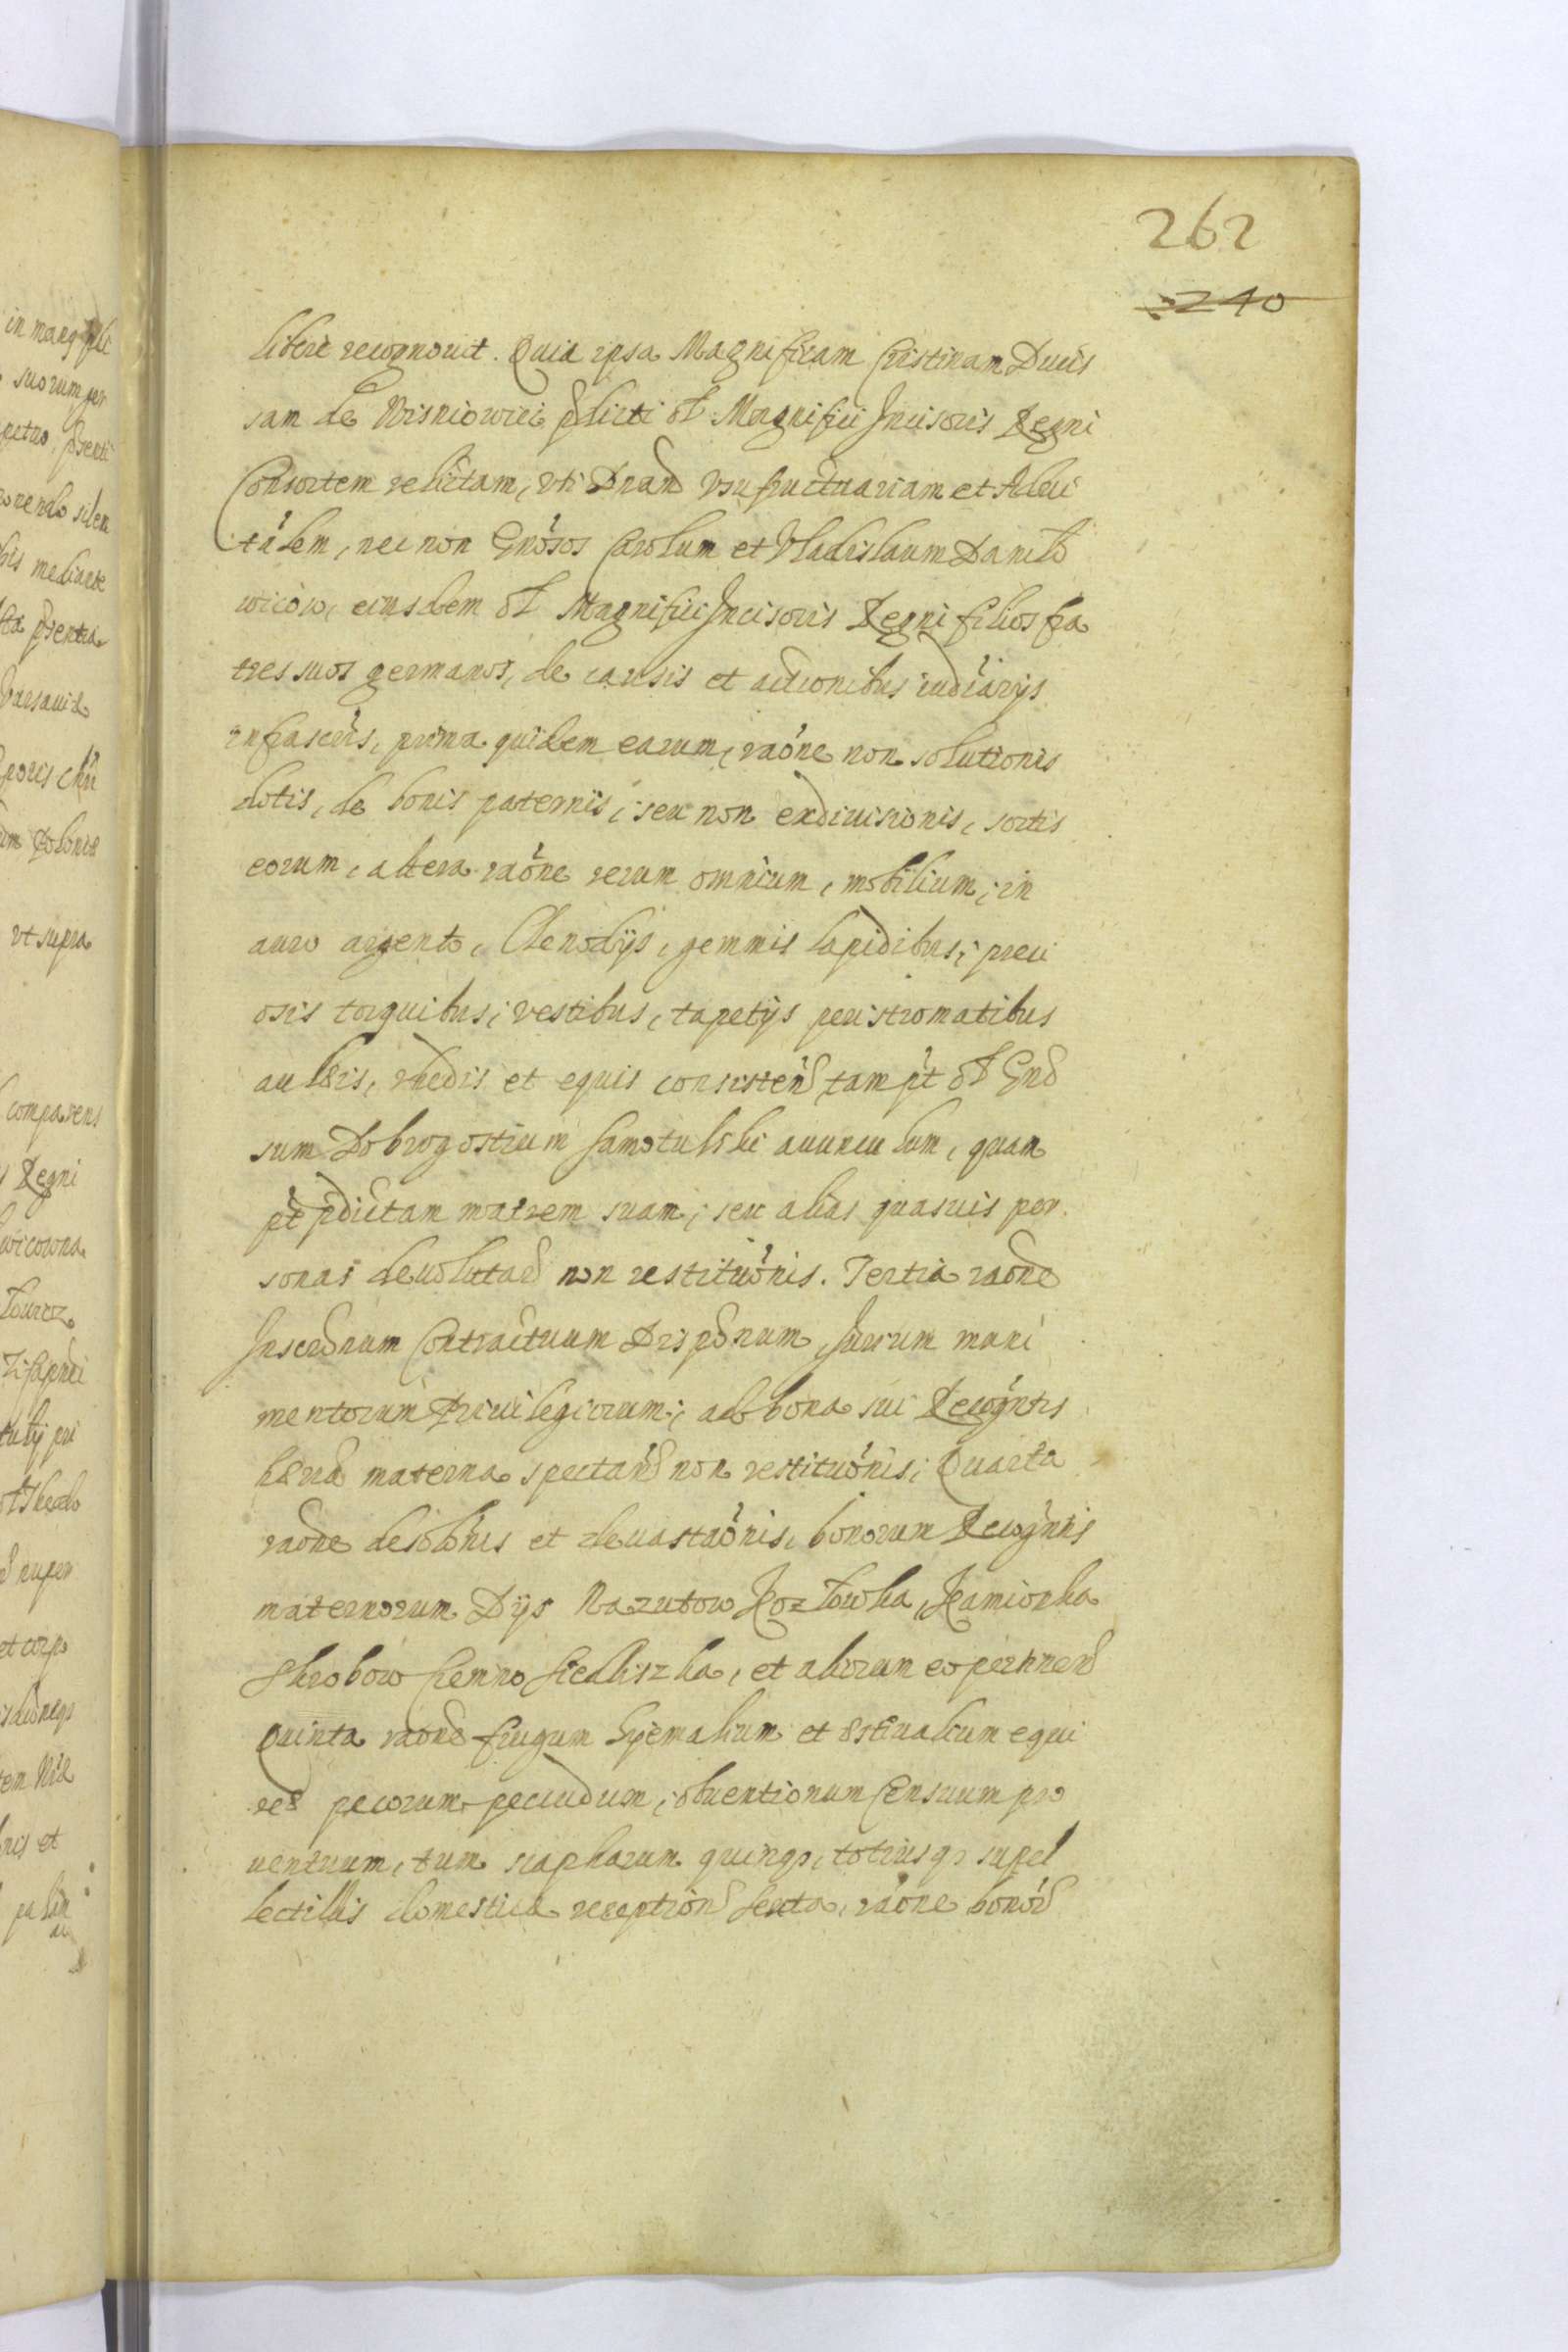 262
240
libere recognovit. Quia ipsa Magnificam Cristinam Ducis
sam de Wisniowiec pdicti ol. Magnifici Incisoris Regni
Consortem relictam, vti Dnam vsufructuariam et Adui
talem, nec non Gnosos Carolum et Vladislaum Danilo
wicow, eiusdem ol Magnifici Incisoris Regni filios fra
tres suos germanos, de causis et actionibus iudiarijs
infrascris, prima quidem earum, raone non solutionis
dotis, de bonis paternis, seu non exdivisionis, sortis
eorum, altera raone rerum omnium, mobilium, in
auro argento, Clenodijs, gemmis lapidibus, preci
osis torquibus, vestibus, tapetijs peristromatibus
aulaeis, rhedis et equis consisten tam pt ol Gno
sum Dobrogostium Samotulski auunculum, quam
pt pdictam matrem suam, seu alias quasuis per
sonas deuolutar non restituonis. Tertia raone
Inscronum Contractuum Disponum, Iurium muni
mentorum Priuilegiorum, ad bona sui Recogntis
haered materna spectan non restituonis, Quarta
raone desolonis et deuastaonis, bonorum Recognntis
maternorum Dijs Nazutow Kozlowka, Kamionka
Skrobow Siemno Siedliszka, et aliorum eo pertinen
Quinta raone frugum hyemalium et aestiualium equi
reae pecorum pecudum, obuentionum Censuum pro
uentuum, tum scapharum quinqz, totiusqz supel
lectillis domesticae reception Sexta, raone bonor
in marg
suorum per
ronendo silen
his mediante
ut supra
comparens
Regni
nuper
et corp
ris et